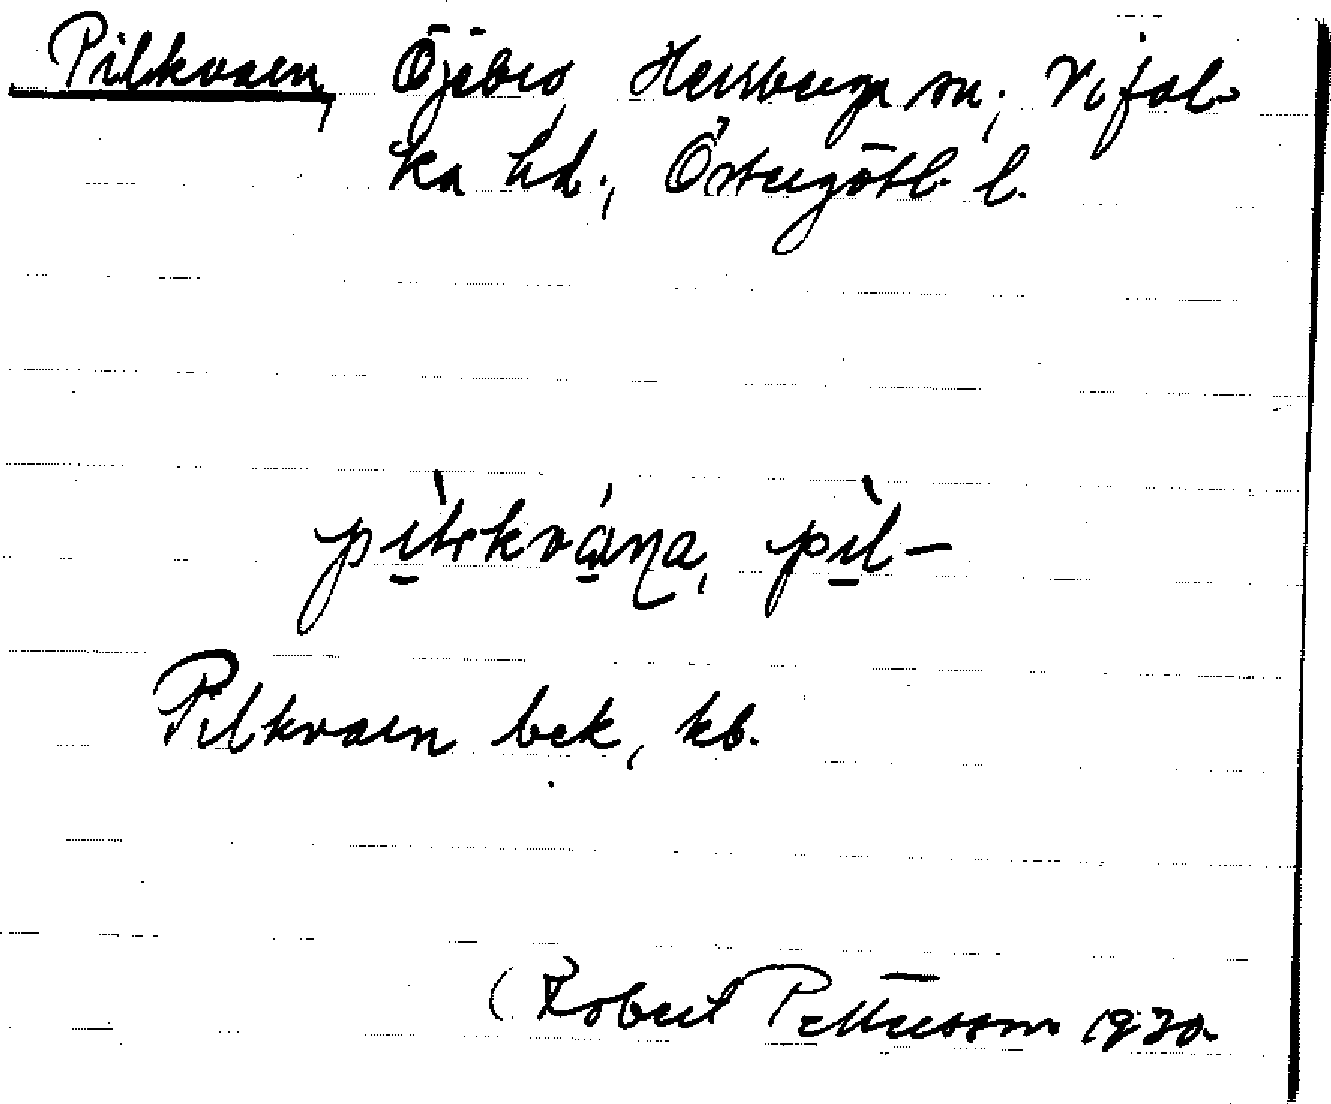 Pilkvarn, Öjebro, Herrberga sn; Vifol-
ka hd., Östergötl. l.
pìlkvá̱ɳa, pìl-
Pilkvarn bek, kb.
(Robert Pettersson 1930.